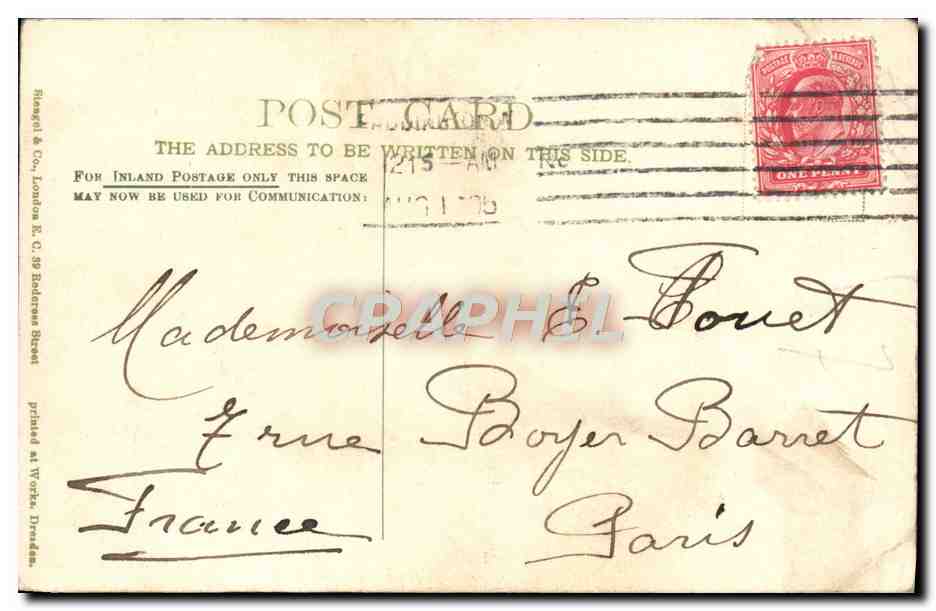 POST CARD
THE ADDRESS TO BE WRITTEN ON THIS SIDE.
FOR INLAND POSTAGE ONLY THIS SPACE
MAY NOW BE USED FOR COMMUNICATION:
POSTAGE REVENUE
ONE PENNY
1215 AM
AUG 1 05
Mademoiselle E. Touet
7 rue Boyer Barret
Paris
France
CRAPHEL
Stengel & Co., London E. C. 39 Redcross Street printed at Works, Dresden.